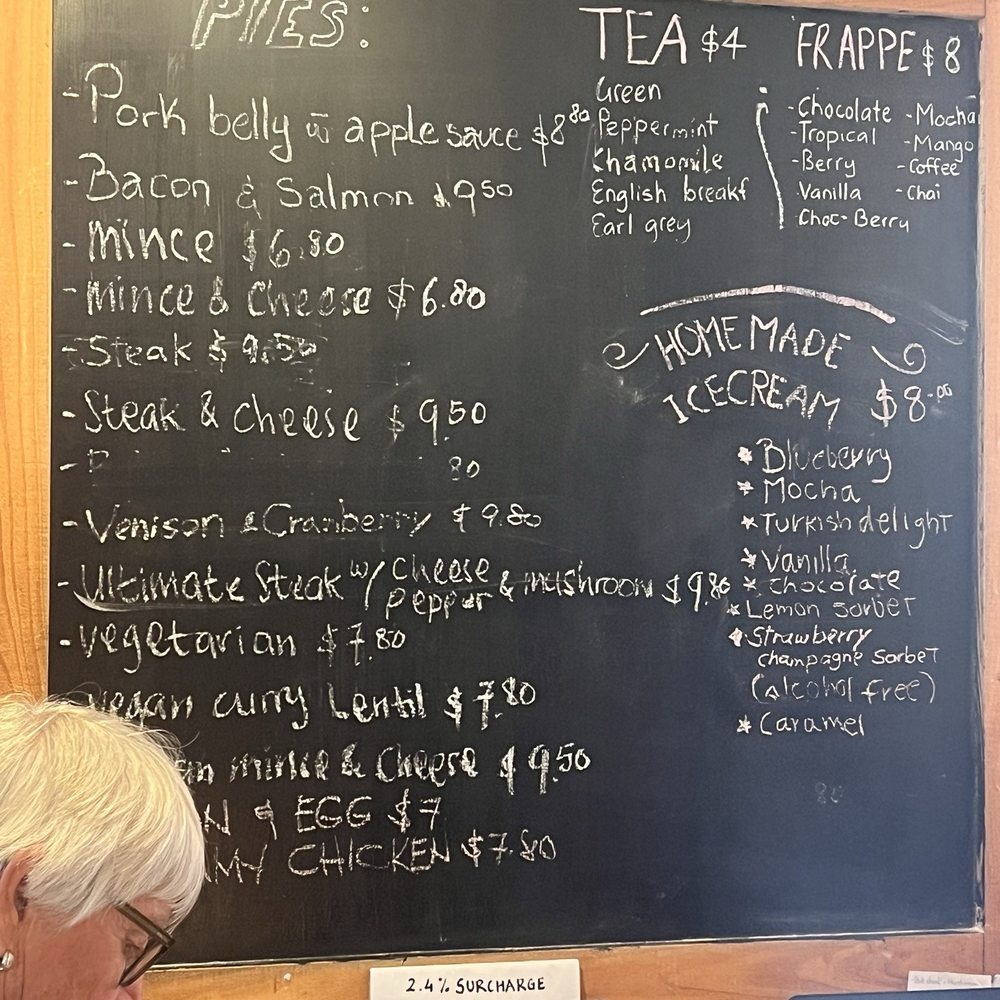 PIES:
- Pork belly w apple sauce $8 80
- Bacon & Salmon $9 50
- Mince $6.80
- Mince & Cheese $6.80
- Steak $9.50
- Steak & cheese $9.50
80
- Venison & Cranberry $9.80
- Ultimate Steak w/ cheese pepper & mushroom $9.80
- vegetarian $7.80
vegan curry Lentil $7.80
mince & Cheese $9.50
& EGG $7
CHICKEN $7.80
TEA $4
Green
Peppermint
Chamomile
English breakf
Earl grey
FRAPPE $8
- Chocolate
- Tropical
- Berry
Vanilla
Choc-Berry
- Mocha
- Mango
- Coffee
- Chai
HOMEMADE
ICECREAM $8.00
* Blueberry
* Mocha
* Turkish delight
* Vanilla
* chocolate
* Lemon sorbet
* Strawberry
champagne sorbet
(alcohol free)
* Caramel
80
2.4% SURCHARGE